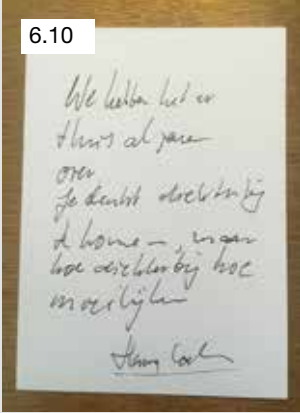 6.10
We hebben het er
thuis al jaren
over
Je denkt dichterbij
te komen –, maar
hoe dichterbij hoe
moeilijker